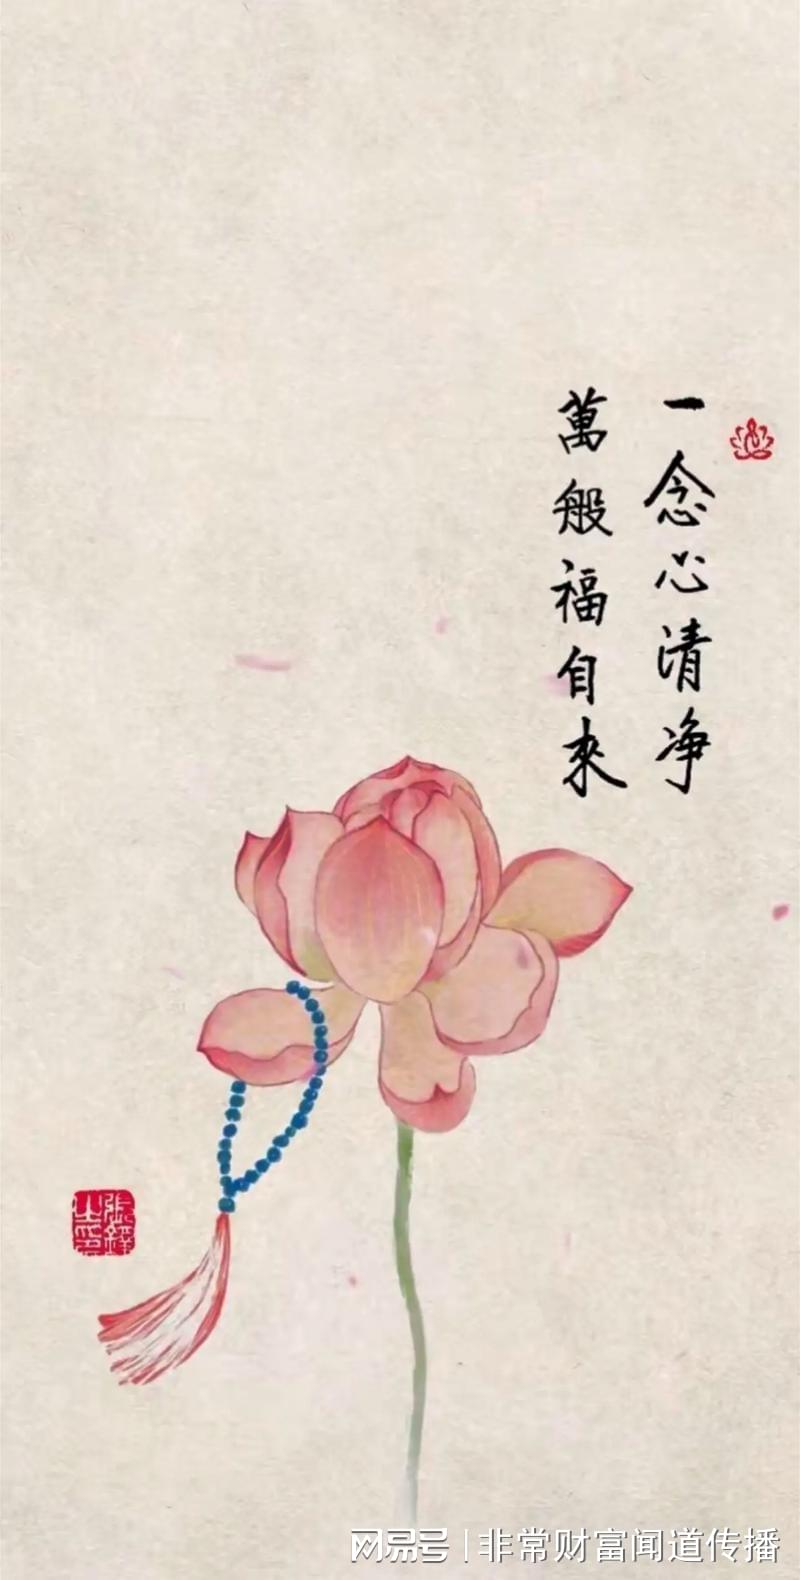 一念心清净
萬般福自來
張鐸之印
网易号 | 非常财富闻道传播